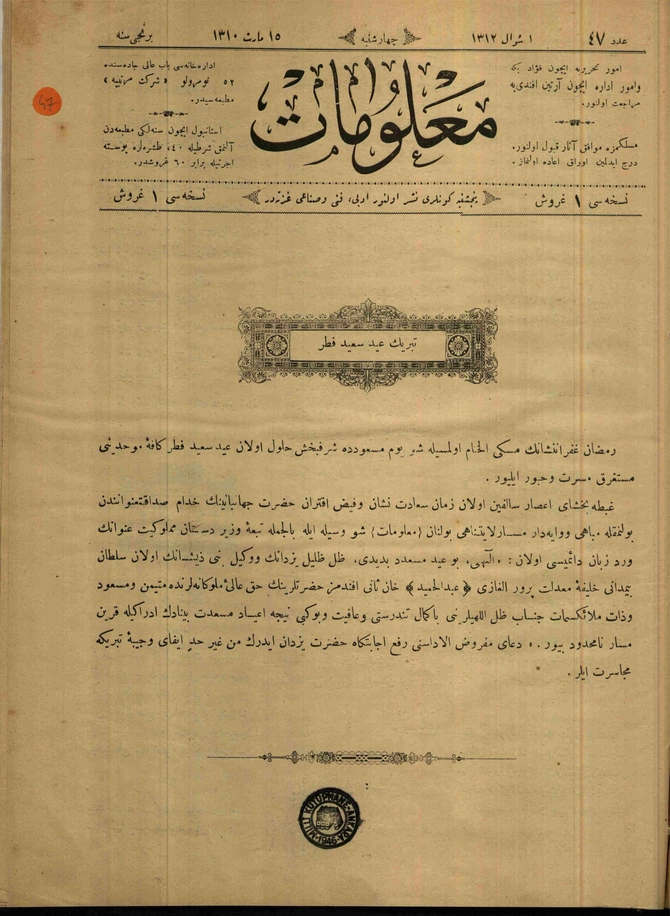 عدد ٤٧
١ شوال ١٣١٢
چهارشنبه
١٥ مارت ١٣١٠
برنجی سنه
امور تحریریه ایچون فؤاد بكه
وامور اداره ایچون آرتین افندی‌یه
مراجعت اولنور.
مسلكمزه موافق آثار قبول اولنور.
درج ایدلمین اوراق اعاده اولنماز.
معلومات
اداره‌خانه‌سی باب عالی جاده‌سنده
٥٢ نومرولو «شركت مرتبیه»
مطبعه‌سیدر.
استانبول ایچون سنه‌لكی مطبعه‌دن
آلنمق شرطیله ٤٠، طشره‌لره پوسته
اجرتیله برابر ٦٠ غروشدر.
نسخه‌سی ١ غروش
پنجشنبه كونلری نشر اولنور ادبی، فنی وصناعی غزته‌در
نسخه‌سی ١ غروش
تبریك عید سعید فطر
رمضان غفراننشانك مسكی الختام اولمسیله شو یوم مسعودده شرفبخش حلول اولان عید سعید فطر كافهٔ موحدینی
مستغرق مسرت وحبور ایلیور.
غبطه بخشای اعصار سالفین اولان زمان سعادت نشان وفیض اقتران حضرت جهانبانینك خدام صداقتعنوانندن
بولنمقله مباهی ووایه‌دار مسار لایتناهی بولنان (معلومات) شو وسیله ایله بالجمله تبعهٔ وزیر دستان مملوكیت عنوانك
ورد زبان دائمیسی اولان: «الٓهی، بو عید مسعدد بدیدی، ظل ظلیل یزدانك ووكیل نبی ذیشانك اولان سلطان
بیمدانی خلیفهٔ معدلت پرور الغازی (عبدالحمید) خان ثانی افندمز حضرتلرینك حق عالئ ملوكانه‌لرنده متیمن ومسعود
وذات ملائكسمات جناب ظل اللهیلرنی باكمال تندرستی وعافیت وبوكبی نیجه اعیاد مسعدت بینادك ادراكیله قرین
مسار نامحدود بیور.» دعای مفروض الاداسنی رفع اجابتكاه حضرت یزدان ایدرك من غیر حد ایفای وجیبهٔ تبریكه
مجاسرت ایلر.
MİLLİ KÜTÜPHANE-ANKARA
1946
47